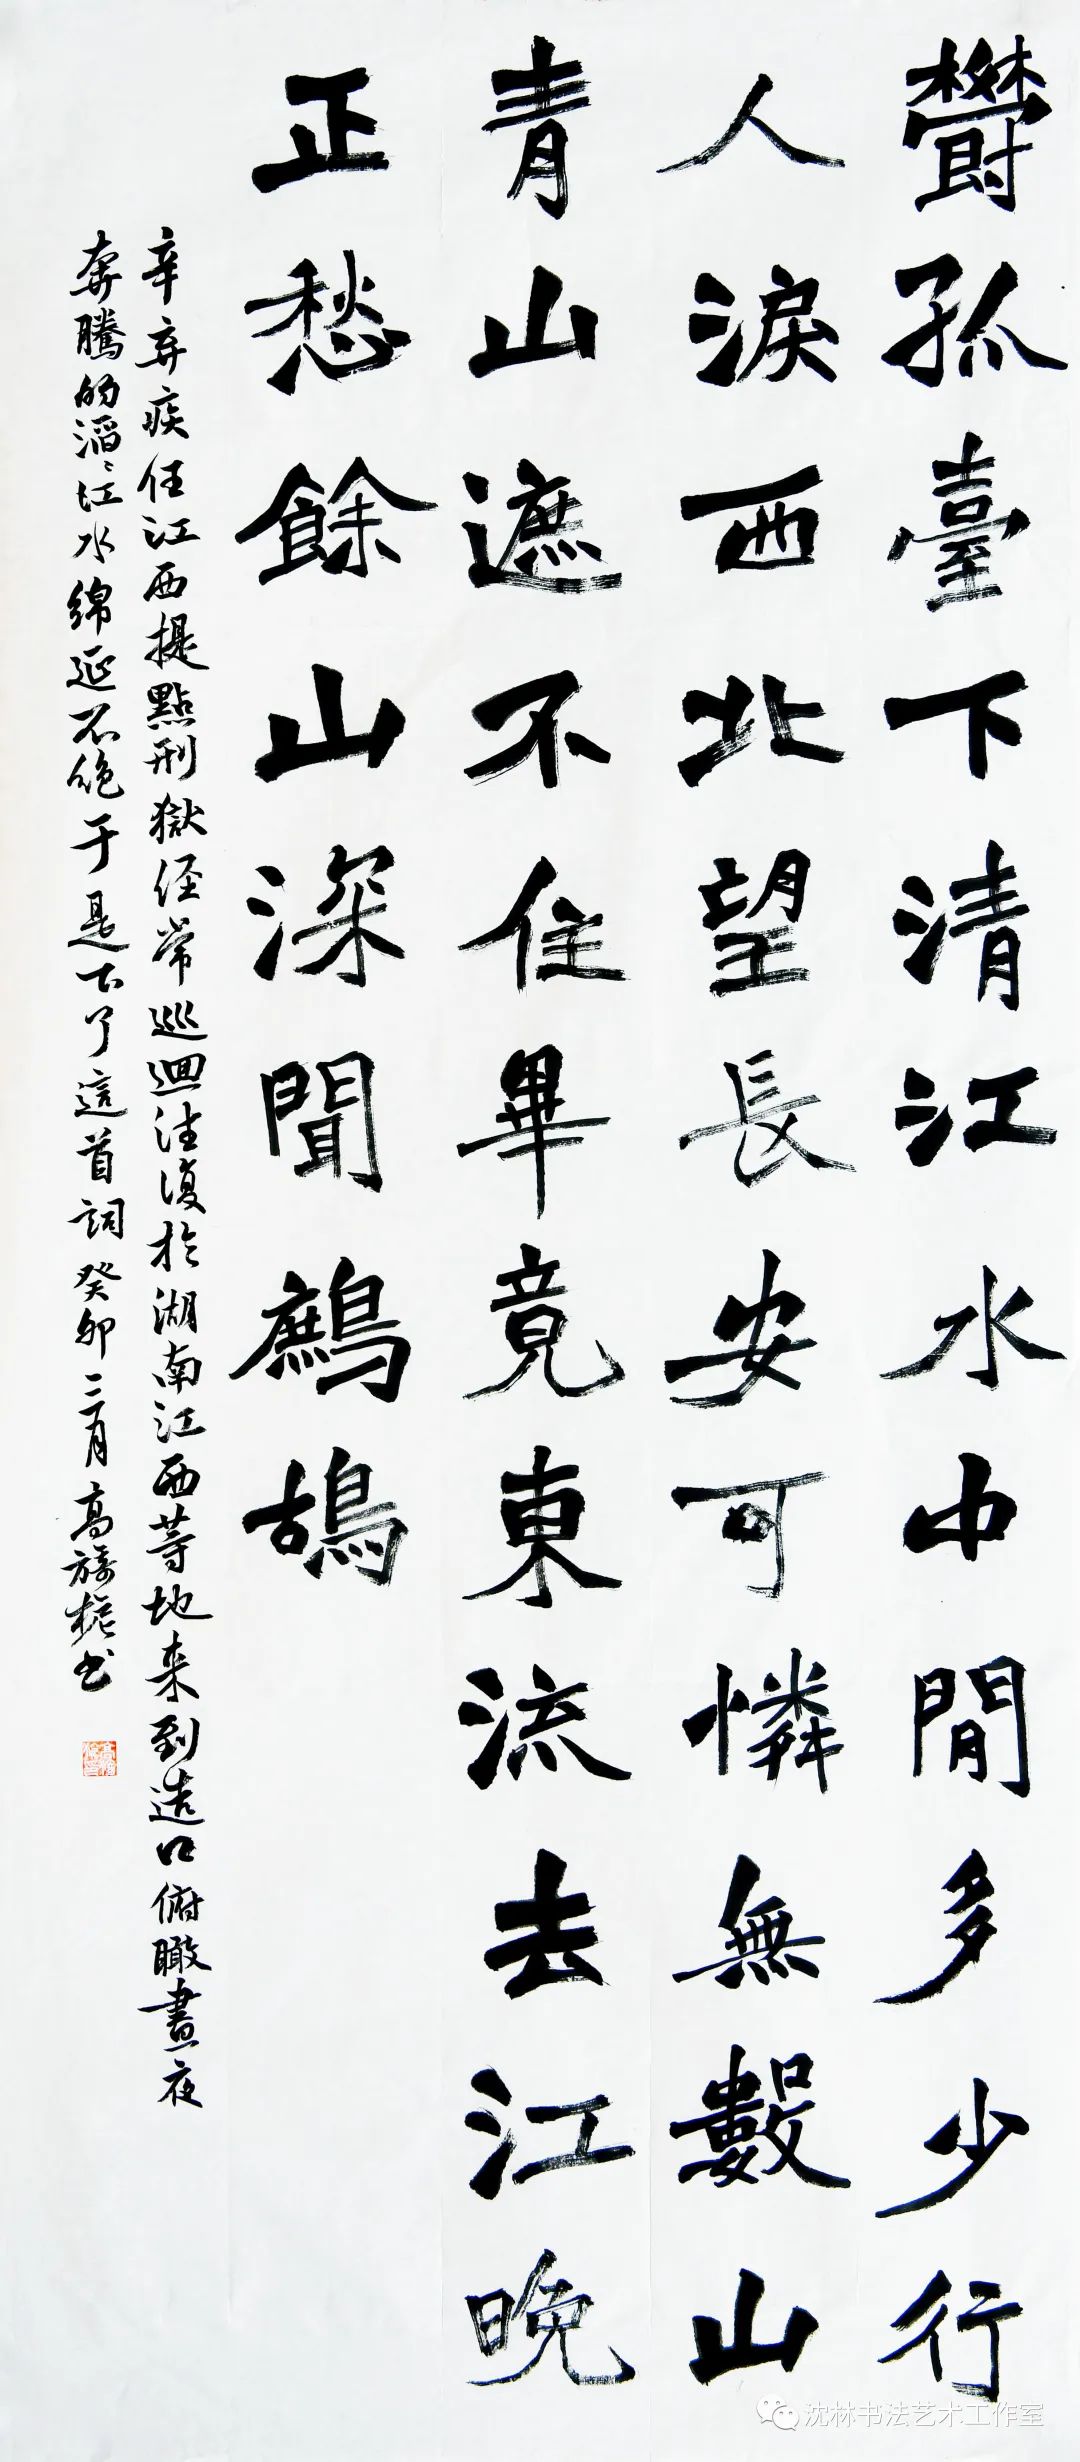 鬱孤臺下清江水中間多少行
人淚西北望長安可憐無數山
青山遮不住畢竟東流去江晚
正愁餘山深聞鷓鴣
辛弃疾任江西提點刑獄经常巡迴往復於湖南江西等地来到造口俯瞰晝夜
奔騰的滔々江水綿延不絶于是下了這首詞癸卯二月高
书
沈林书法艺术工作室